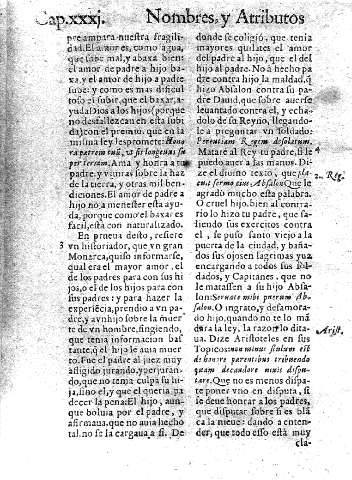 Cap.xxxj. Nombres, y Atributos
pre ampara nuestra fragili-
dad. El amor es, como agua,
que sabe mal, y abaxa bien:
el amor de padre a hijo ba-
xa, y el amor de hijo a padre
sube: y como es mas dificul-
toso el subir, que el baxar, a-
yuda Dios a los hijos (porque
no desfallezcan en esta subi
da) con el premio, que en la
misma ley les promete: Hono
ra patrem tuũ, vt sis longæuus su-
per terram. Ama y honra a tu
padre, y viuiras sobre la haz
de la tierra, y otras mil ben-
diciones. El amor de padre a
hijo no ha menester esta ayu-
da, porque como el baxar es
facil, està con naturalizado.
En prueua desto, refiere
3 vn historiador, que vn gran
Monarca, quiso informarse,
qual era el mayor amor, el
de los padres para con sus hi-
jos, o el de los hijos para con
sus padres: y para hazer la
experiẽcia, prendio a vn pa-
dre, y a vn hijo sobre la muer
te de vn hombre, fingiendo,
que tenia informacion bas-
tante, q̃ el hijo le auia muer-
to. Fue el padre al juez muy
afligido jurando, y perjurando,
que no tenia culpa su hi-
ja, sino el, y que el queria pa
decer la pena: El hijo, aun-
que boluia por el padre, y
afirmaua, que no auia hecho
tal, no se la cargaua a si. De
donde se coligió, que tenia
mayores quilates el amor
del padre al hijo, que el del
hijo al padre. No à hecho pa
dre contra hijo la maldad, q̃
hizo Absalon contra su pa-
dre Dauid, que sobre auerse
leuantado contra el, y echa-
dolo de su Reyno, llegando-
le a preguntar vn soldado:
Percutiam Regem desolatum.
Matarè al Rey tu padre, si le
puedo auer a las manos. Di-
ze el diuino texto, que pla-
cuit sermo eius Absalon Que le
agradó mucho esta palabra.
O cruel hijo, bien al contra-
rio lo hizo tu padre, que sa-
liendo sus exercitos contra
el, se puso santo viejo a la
puerta de la ciudad, y baña-
dos sus ojos en lagrimas yua
encargando a todos sus sol-
dados, y Capitanes, que no
le matassen a su hijo Absa-
lon: Seruate mihi puerum Ab-
salon. O ingrato, y desamora-
do hijo, quando no te lo mã
dara la ley, la razon lo dita-
ua. Dize Aristoteles en sus
Topicos:
de honore parentibus tribuendo
quam decandore niuis dispu-
tare. Que no es menos dispa-
te poner vno en disputa, si
se deue honrar a los padres,
que disputar sobre si es blã
ca la nieue: dando a enten-
der, que todo esso està muy
cla-
2. Reg.
Arist.